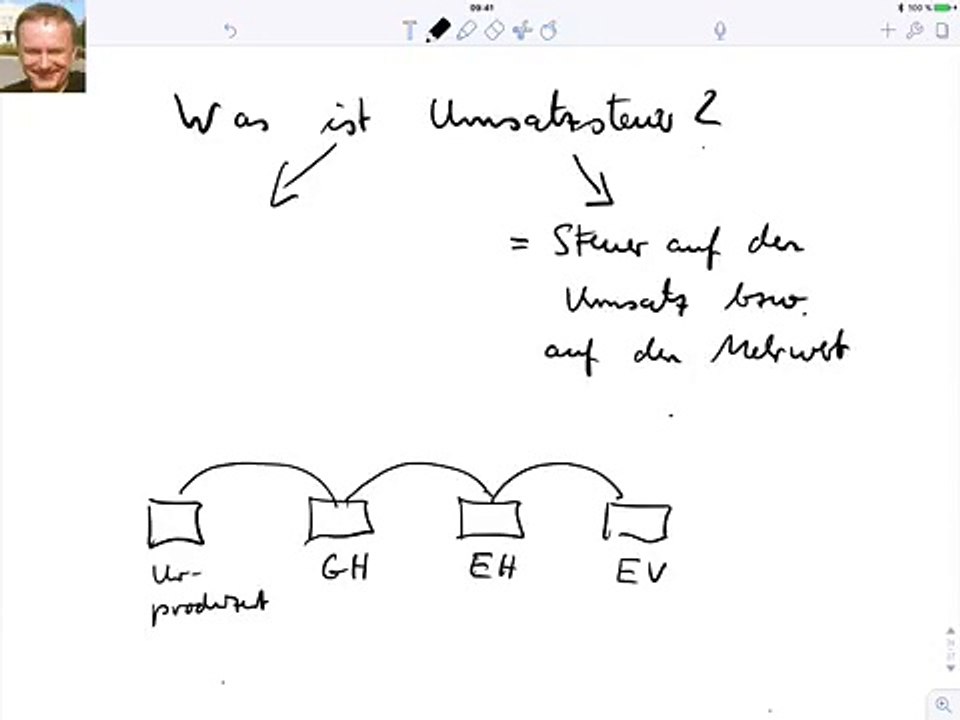 09:41
100 %
T
Was ist Umsatzsteuer?
= Steuer auf den
Umsatz bzw.
auf den Mehrwert
Ur-
produzent
GH
EH
EV